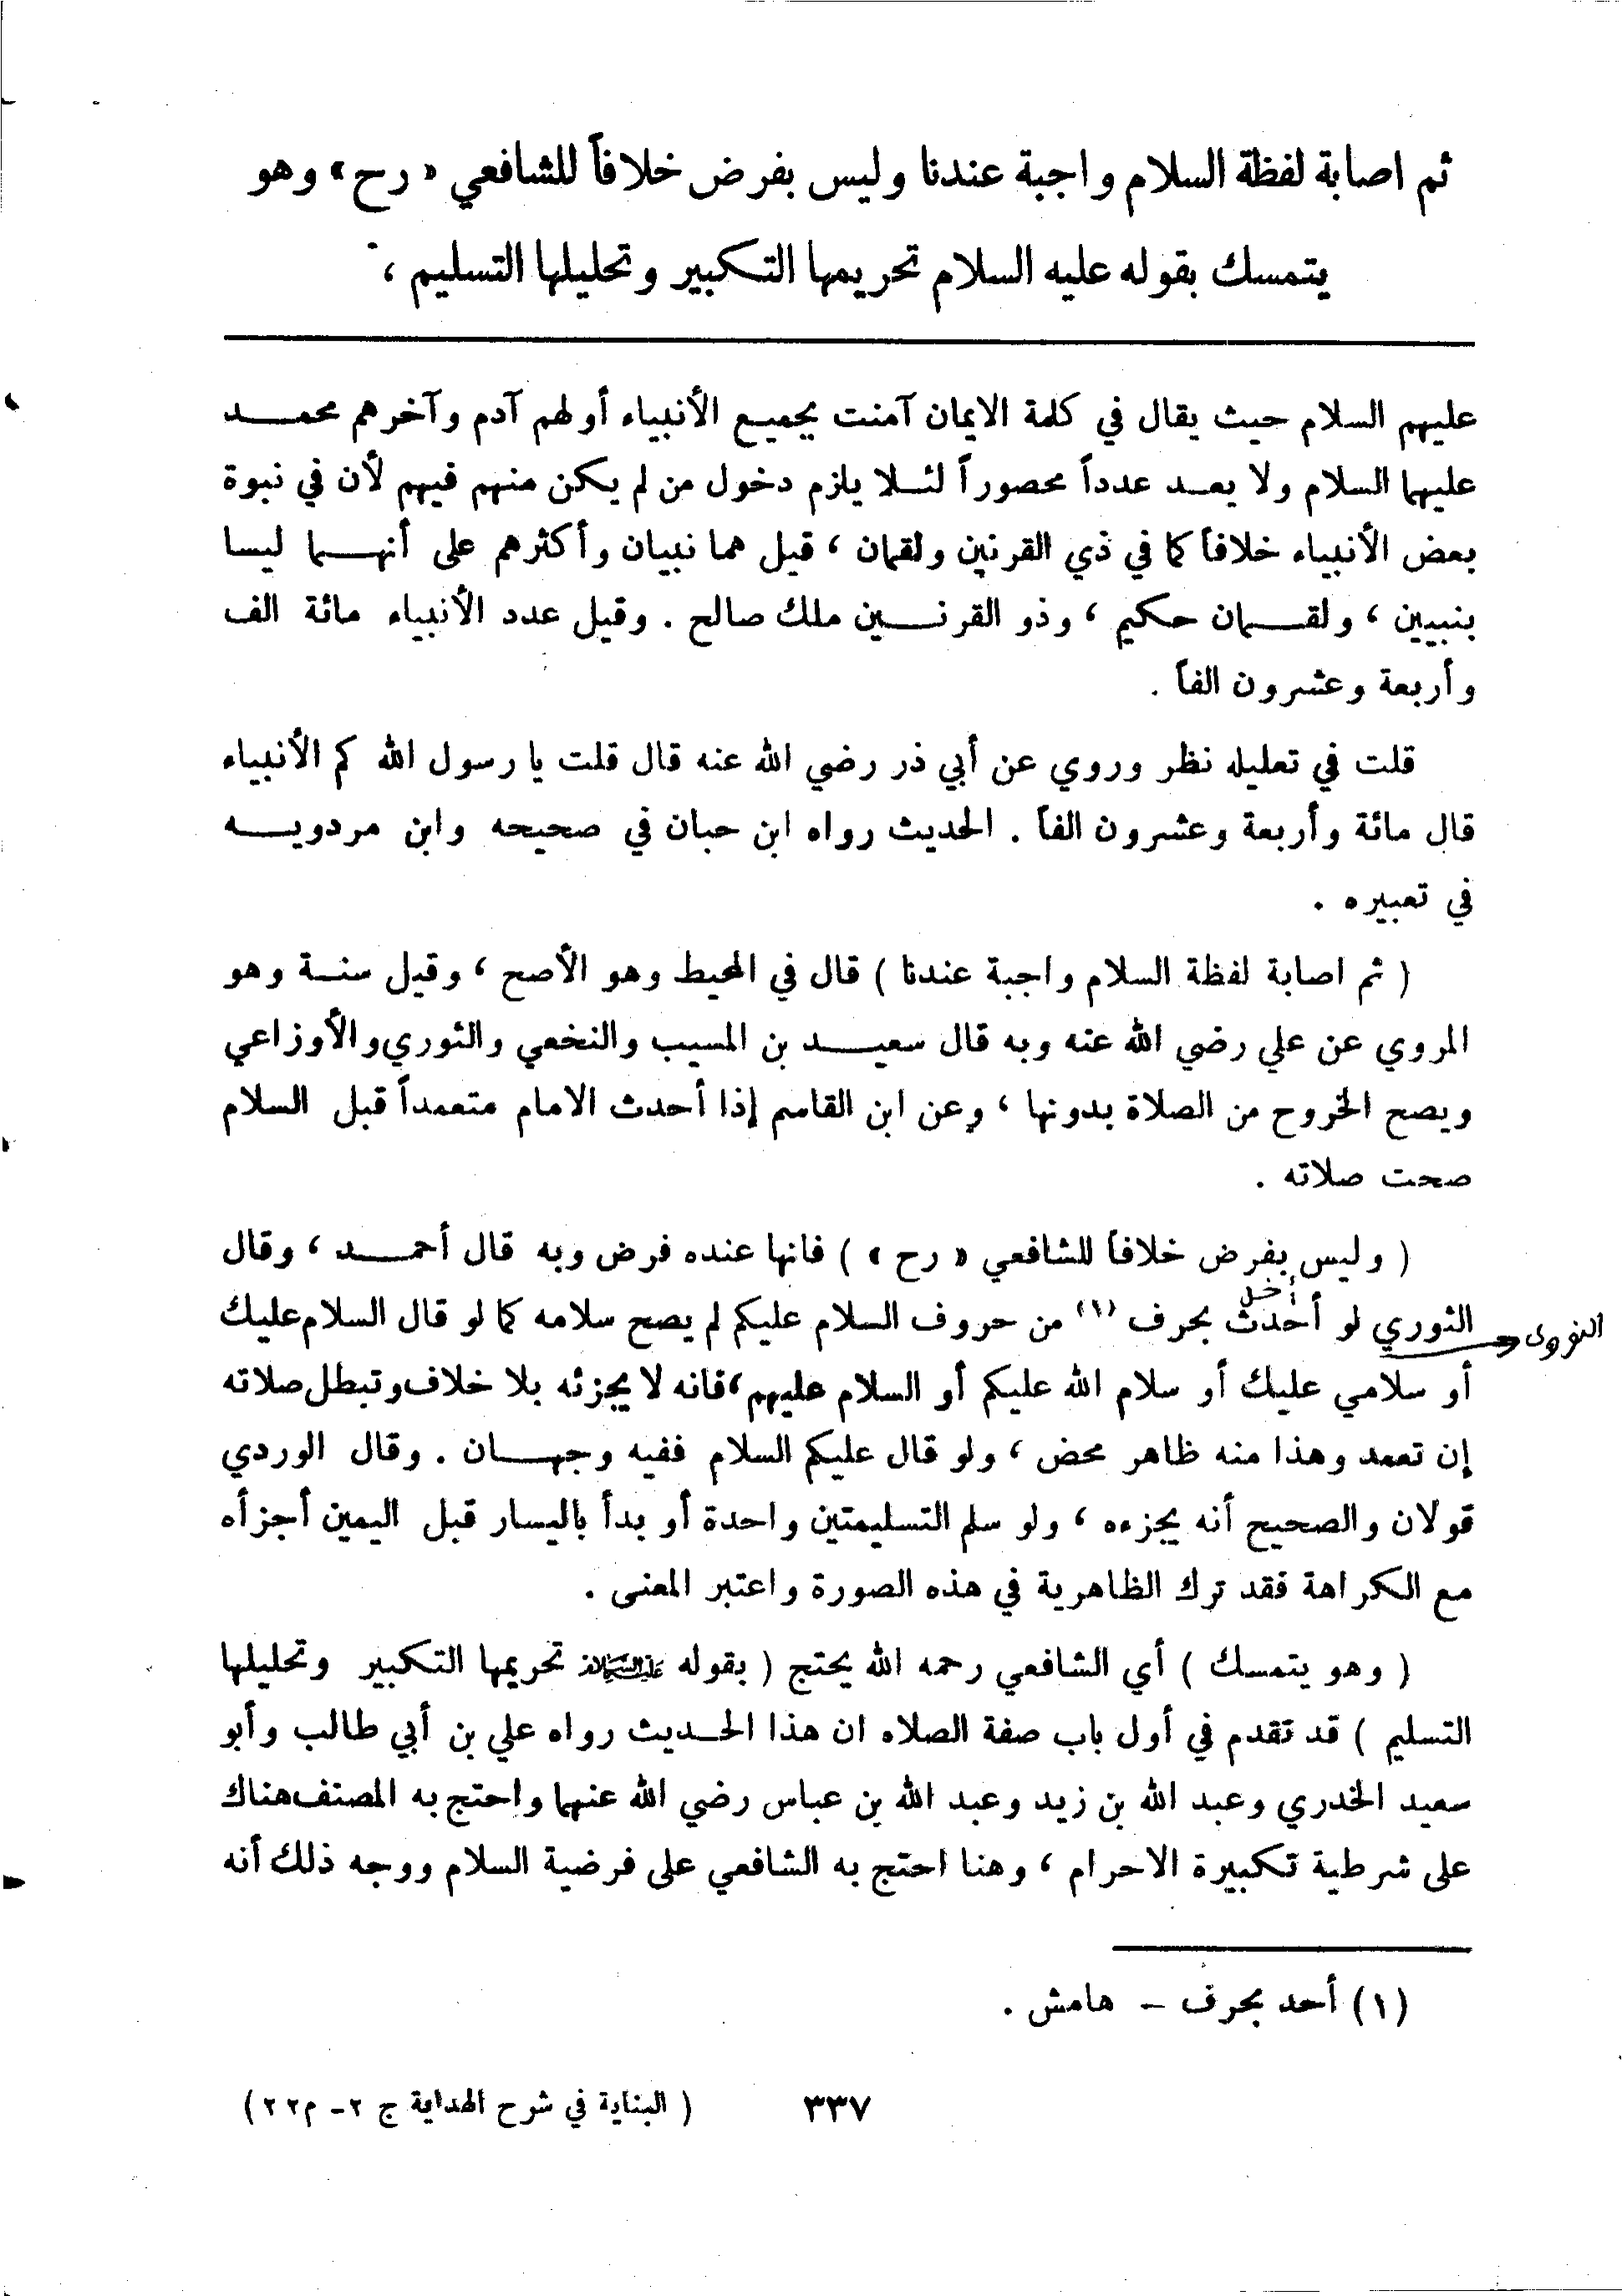 ثم اصابة لفظة السلام واجبة عندنا وليس بفرض خلافاً للشافعي « رح » وهو
يتمسك بقوله عليه السلام تحريمها التكبير وتحليلها التسليم ،
عليهم السلام حيث يقال في كلمة الايمان آمنت بجميع الأنبياء أولهم آدم وآخرهم محمد
عليهما السلام ولا يعد عدداً محصوراً لئلا يلزم دخول من لم يكن منهم فيهم لأن في نبوة
بعض الأنبياء خلافاً كما في ذي القرنين ولقمان ، قيل هما نبيان وأكثرهم على أنهما ليسا
بنبيين ، ولقمان حكيم ، وذو القرنين ملك صالح . وقيل عدد الأنبياء مائة الف
وأربعة وعشرون الفاً .
قلت في تعليله نظر وروي عن أبي ذر رضي الله عنه قال قلت يا رسول الله كم الأنبياء
قال مائة وأربعة وعشرون الفاً . الحديث رواه ابن حبان في صحيحه وابن مردويه
في تعبيره .
( ثم اصابة لفظة السلام واجبة عندنا ) قال في المحيط وهو الأصح ، وقيل سنة وهو
المروي عن علي رضي الله عنه وبه قال سعيد بن المسيب والنخعي والثوري والأوزاعي
ويصح الخروح من الصلاة بدونها ، وعن ابن القاسم إذا أحدث الامام متعمداً قبل السلام
صحت صلاته .
( وليس بفرض خلافاً للشافعي « رح » ) فانها عنده فرض وبه قال أحمد ، وقال
أخل
النووى
الثوري لو أحدث بحرف (١) من حروف السلام عليكم لم يصح سلامه كما لو قال السلام عليك
أو سلامي عليك أو سلام الله عليكم أو السلام عليهم ، فانه لا يجزئه بلا خلاف وتبطل صلاته
إن تعمد وهذا منه ظاهر محض ، ولو قال عليكم السلام ففيه وجهان . وقال الوردي
قولان والصحيح أنه يجزءه ، ولو سلم التسليمتين واحدة أو بدأ باليسار قبل اليمين أجزأه
مع الكراهة فقد ترك الظاهرية في هذه الصورة واعتبر المعنى .
( وهو يتمسك ) أي الشافعي رحمه الله يحتج ( بقوله عليه السلام تحريمها التكبير وتحليلها
التسليم ) قد تقدم في أول باب صفة الصلاه ان هذا الحديث رواه علي بن أبي طالب وأبو
سعيد الخدري وعبد الله بن زيد وعبد الله بن عباس رضي الله عنهما واحتج به المصنف هناك
على شرطية تكبيرة الاحرام ، وهنا احتج به الشافعي على فرضية السلام ووجه ذلك أنه
(١) أحد بحرف – هامش .
٣٣٧
( البناية في شرح الهداية ج ٢ - م ٢٢ )